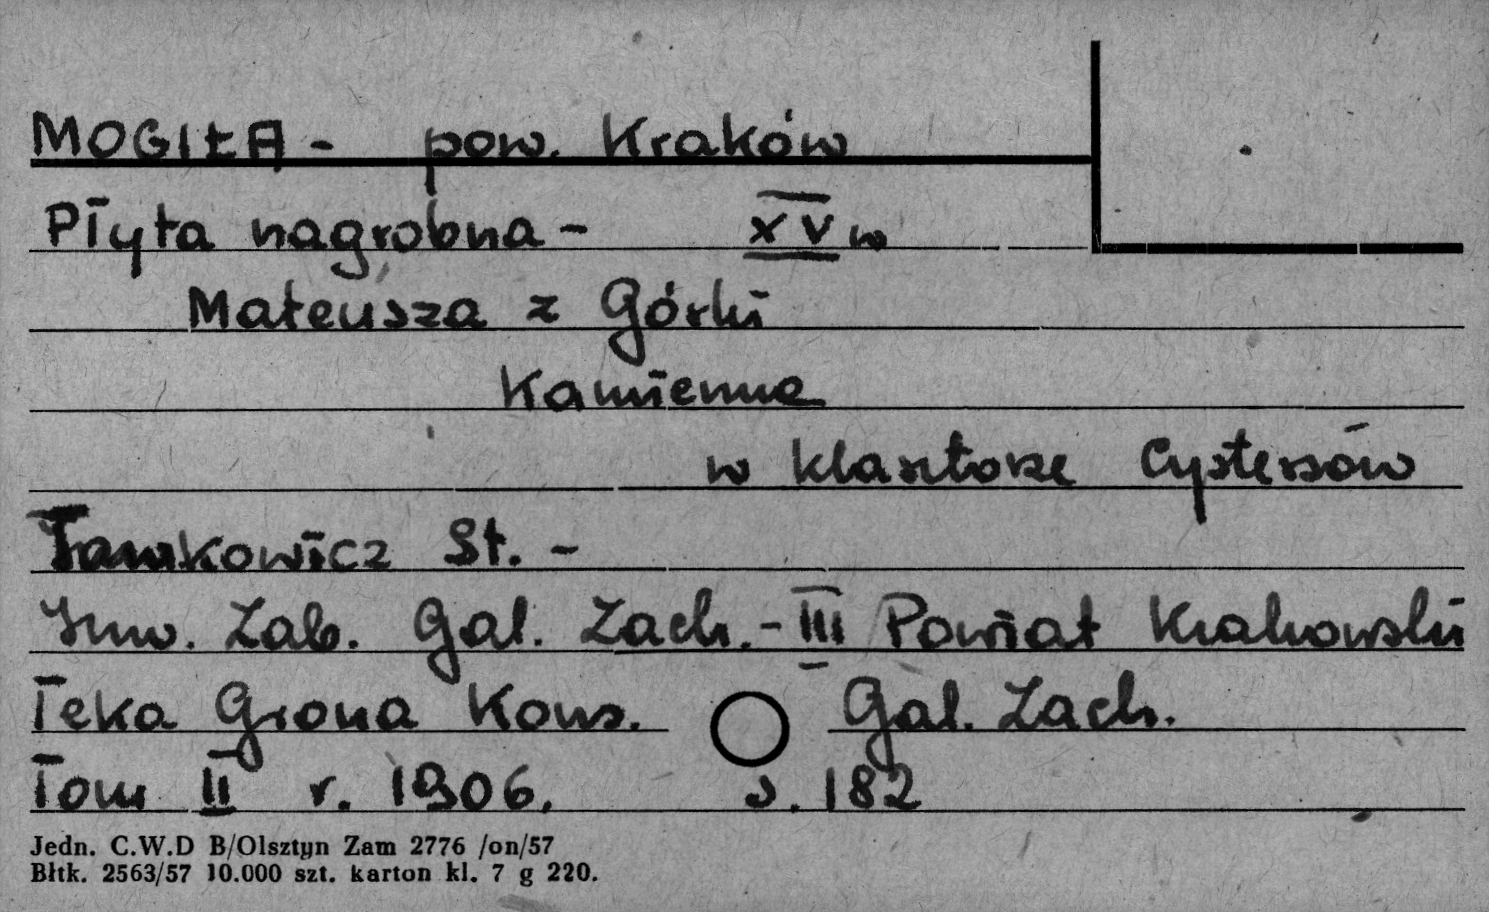 MOGIŁA - pow. Kraków
Płyta nagrobna - XV w
Mateusza z Górki
Kamienna
w klasztorze Cystersów
Tomkowicz St. -
Inw. Zab. Gal. Zach. - III Powiat Krakowski
Teka Grona Kons. Gal. Zach.
Tom II r. 1906. s. 182
Jedn. C.W.D B/Olsztyn Zam 2776 /on/57
Błtk. 2563/57 10.000 szt. karton kl. 7 g 220.